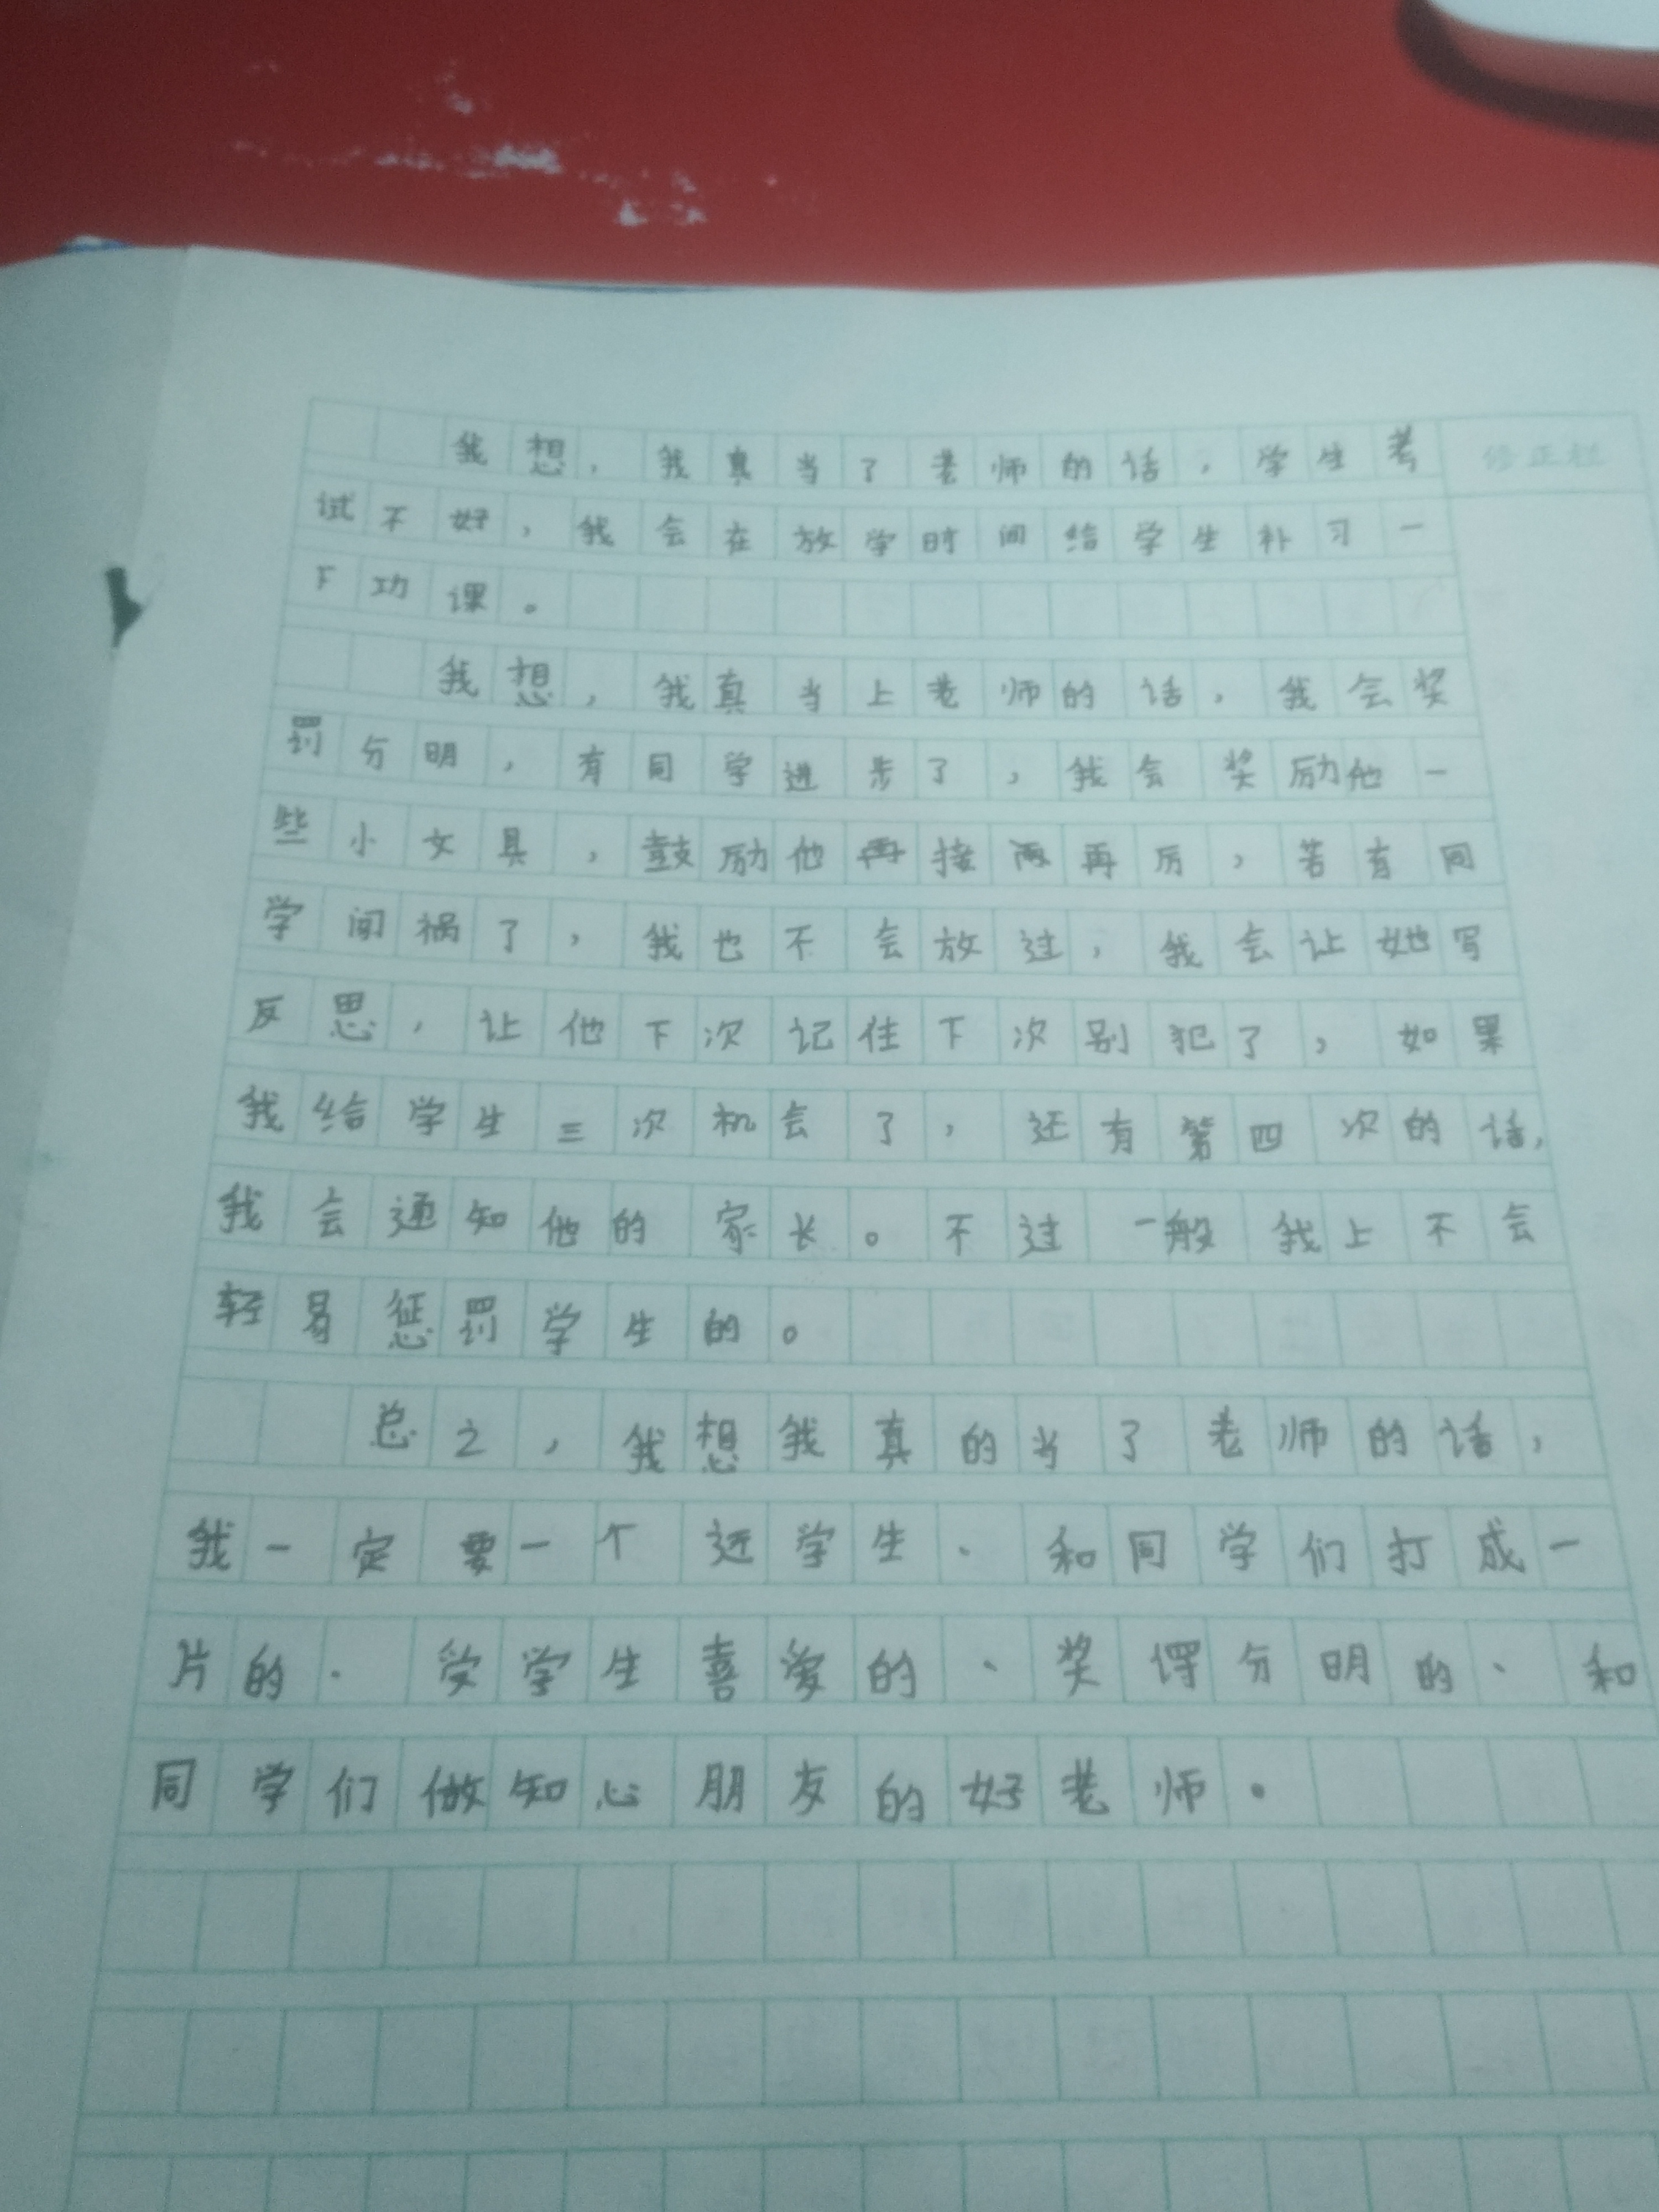 我想，我真当了老师的话，学生考
修正栏
试不好，我会在放学时间给学生补习一
下功课。
我想，我真当上老师的话，我会奖
罚分明，有同学进步了，我会奖励他一
些小文具，鼓励他再接再厉，若有同
学闯祸了，我也不会放过，我会让她写
反思，让他下次记住下次别犯了，如果
我给学生三次机会了，还有第四次的话，
我会通知他的家长。不过一般我上不会
轻易惩罚学生的。
总之，我想我真的当了老师的话，
我一定要一个还学生、和同学们打成一
片的、受学生喜爱的、奖分明的、和
同学们做知心朋友的好老师。